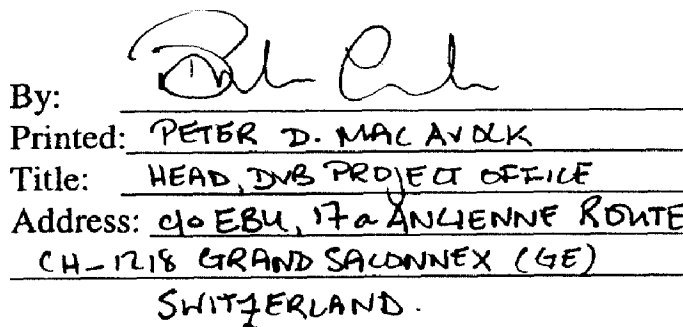 By:
Printed: PETER D. MAC AVOCK
Title: HEAD, DVB PROJECT OFFICE
Address: c/o EBU, 17a ANCIENNE ROUTE
CH-1218 GRAND SACONNEX (GE)
SWITZERLAND.